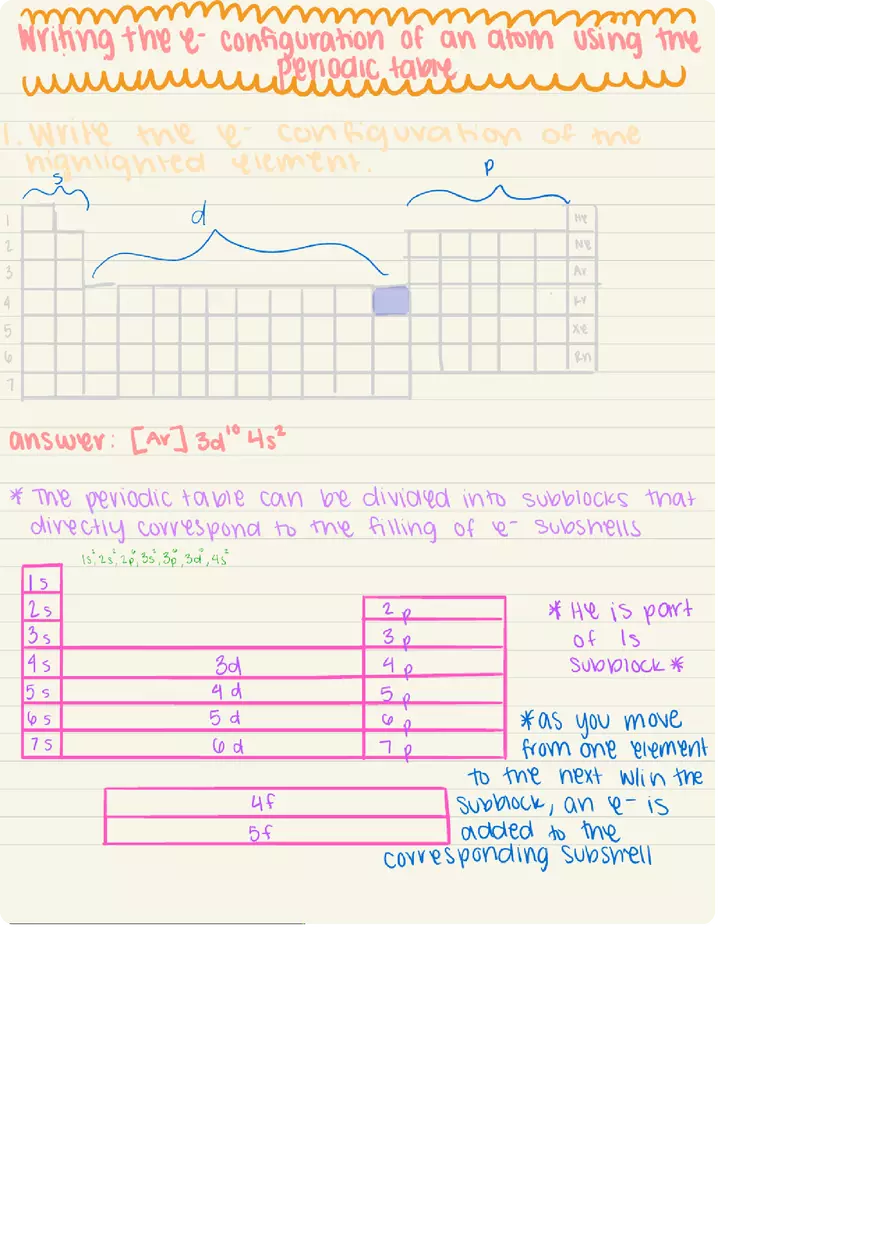 Writing the e- configuration of an atom using the
periodic table
1. Write the e- configuration of the
highlighted element.
s
p
d
1
He
2
Ne
3
Ar
4
Kr
5
Xe
6
Rn
7
answer: [Ar] 3d¹⁰ 4s²
* The periodic table can be divided into subblocks that
directly correspond to the filling of e- subshells
1s², 2s², 2p⁶, 3s², 3p⁶, 3d¹⁰, 4s²
1s
2s 2p
3s 3p
4s 3d 4p
5s 4d 5p
6s 5d 6p
7s 6d 7p
4f
5f
* He is part
of 1s
subblock *
* as you move
from one element
to the next w/in the
subblock, an e- is
added to the
corresponding subshell